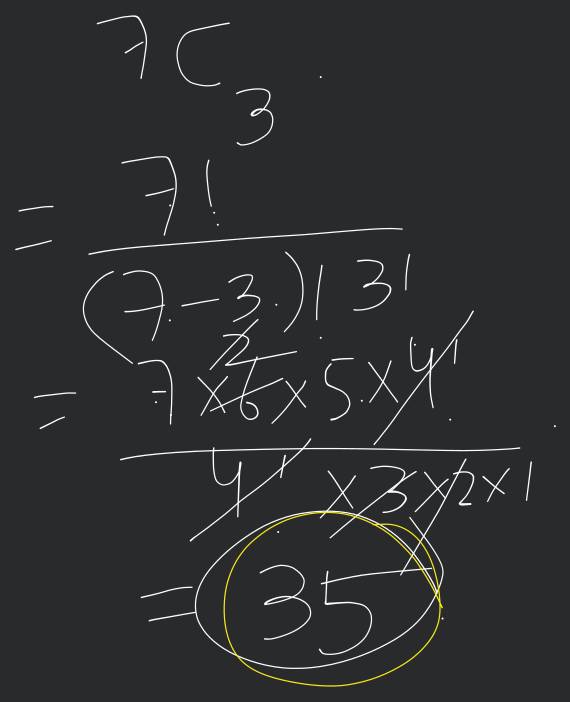 7C3
= 7!
(7-3)! 3!
= 7 × 6 2 × 5 × 4!
4! × 3 × 2 × 1
= 35